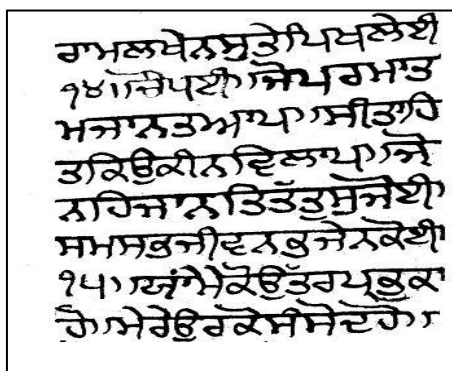 ਰਾਮਲਖੇਨਸੁਤੇਪਿਖਲੇਈ
੧੪॥ਚੌਪਈ॥ਜੋਪਰਮਾਤ
ਮਜਾਨਤਆਪ॥ਸੀਤਾਹਿ
ਤਕਿਉਕੀਨਵਿਲਾਪ॥ਜੋ
ਨਹਿਜਾਨਤਿਤੱਤੁਸੁਜੋਈ॥
ਸਮਸਭਜੀਵਨਭਜੇਨਕੋਈ॥
੧੫॥ਯਾਂਮੈਕੋਉੱਤਰਪ੍ਰਭੁਕਾ
ਹੈ॥ਮੇਰੇਉਰਕੋਸੰਸੋਦੋਹੈ॥